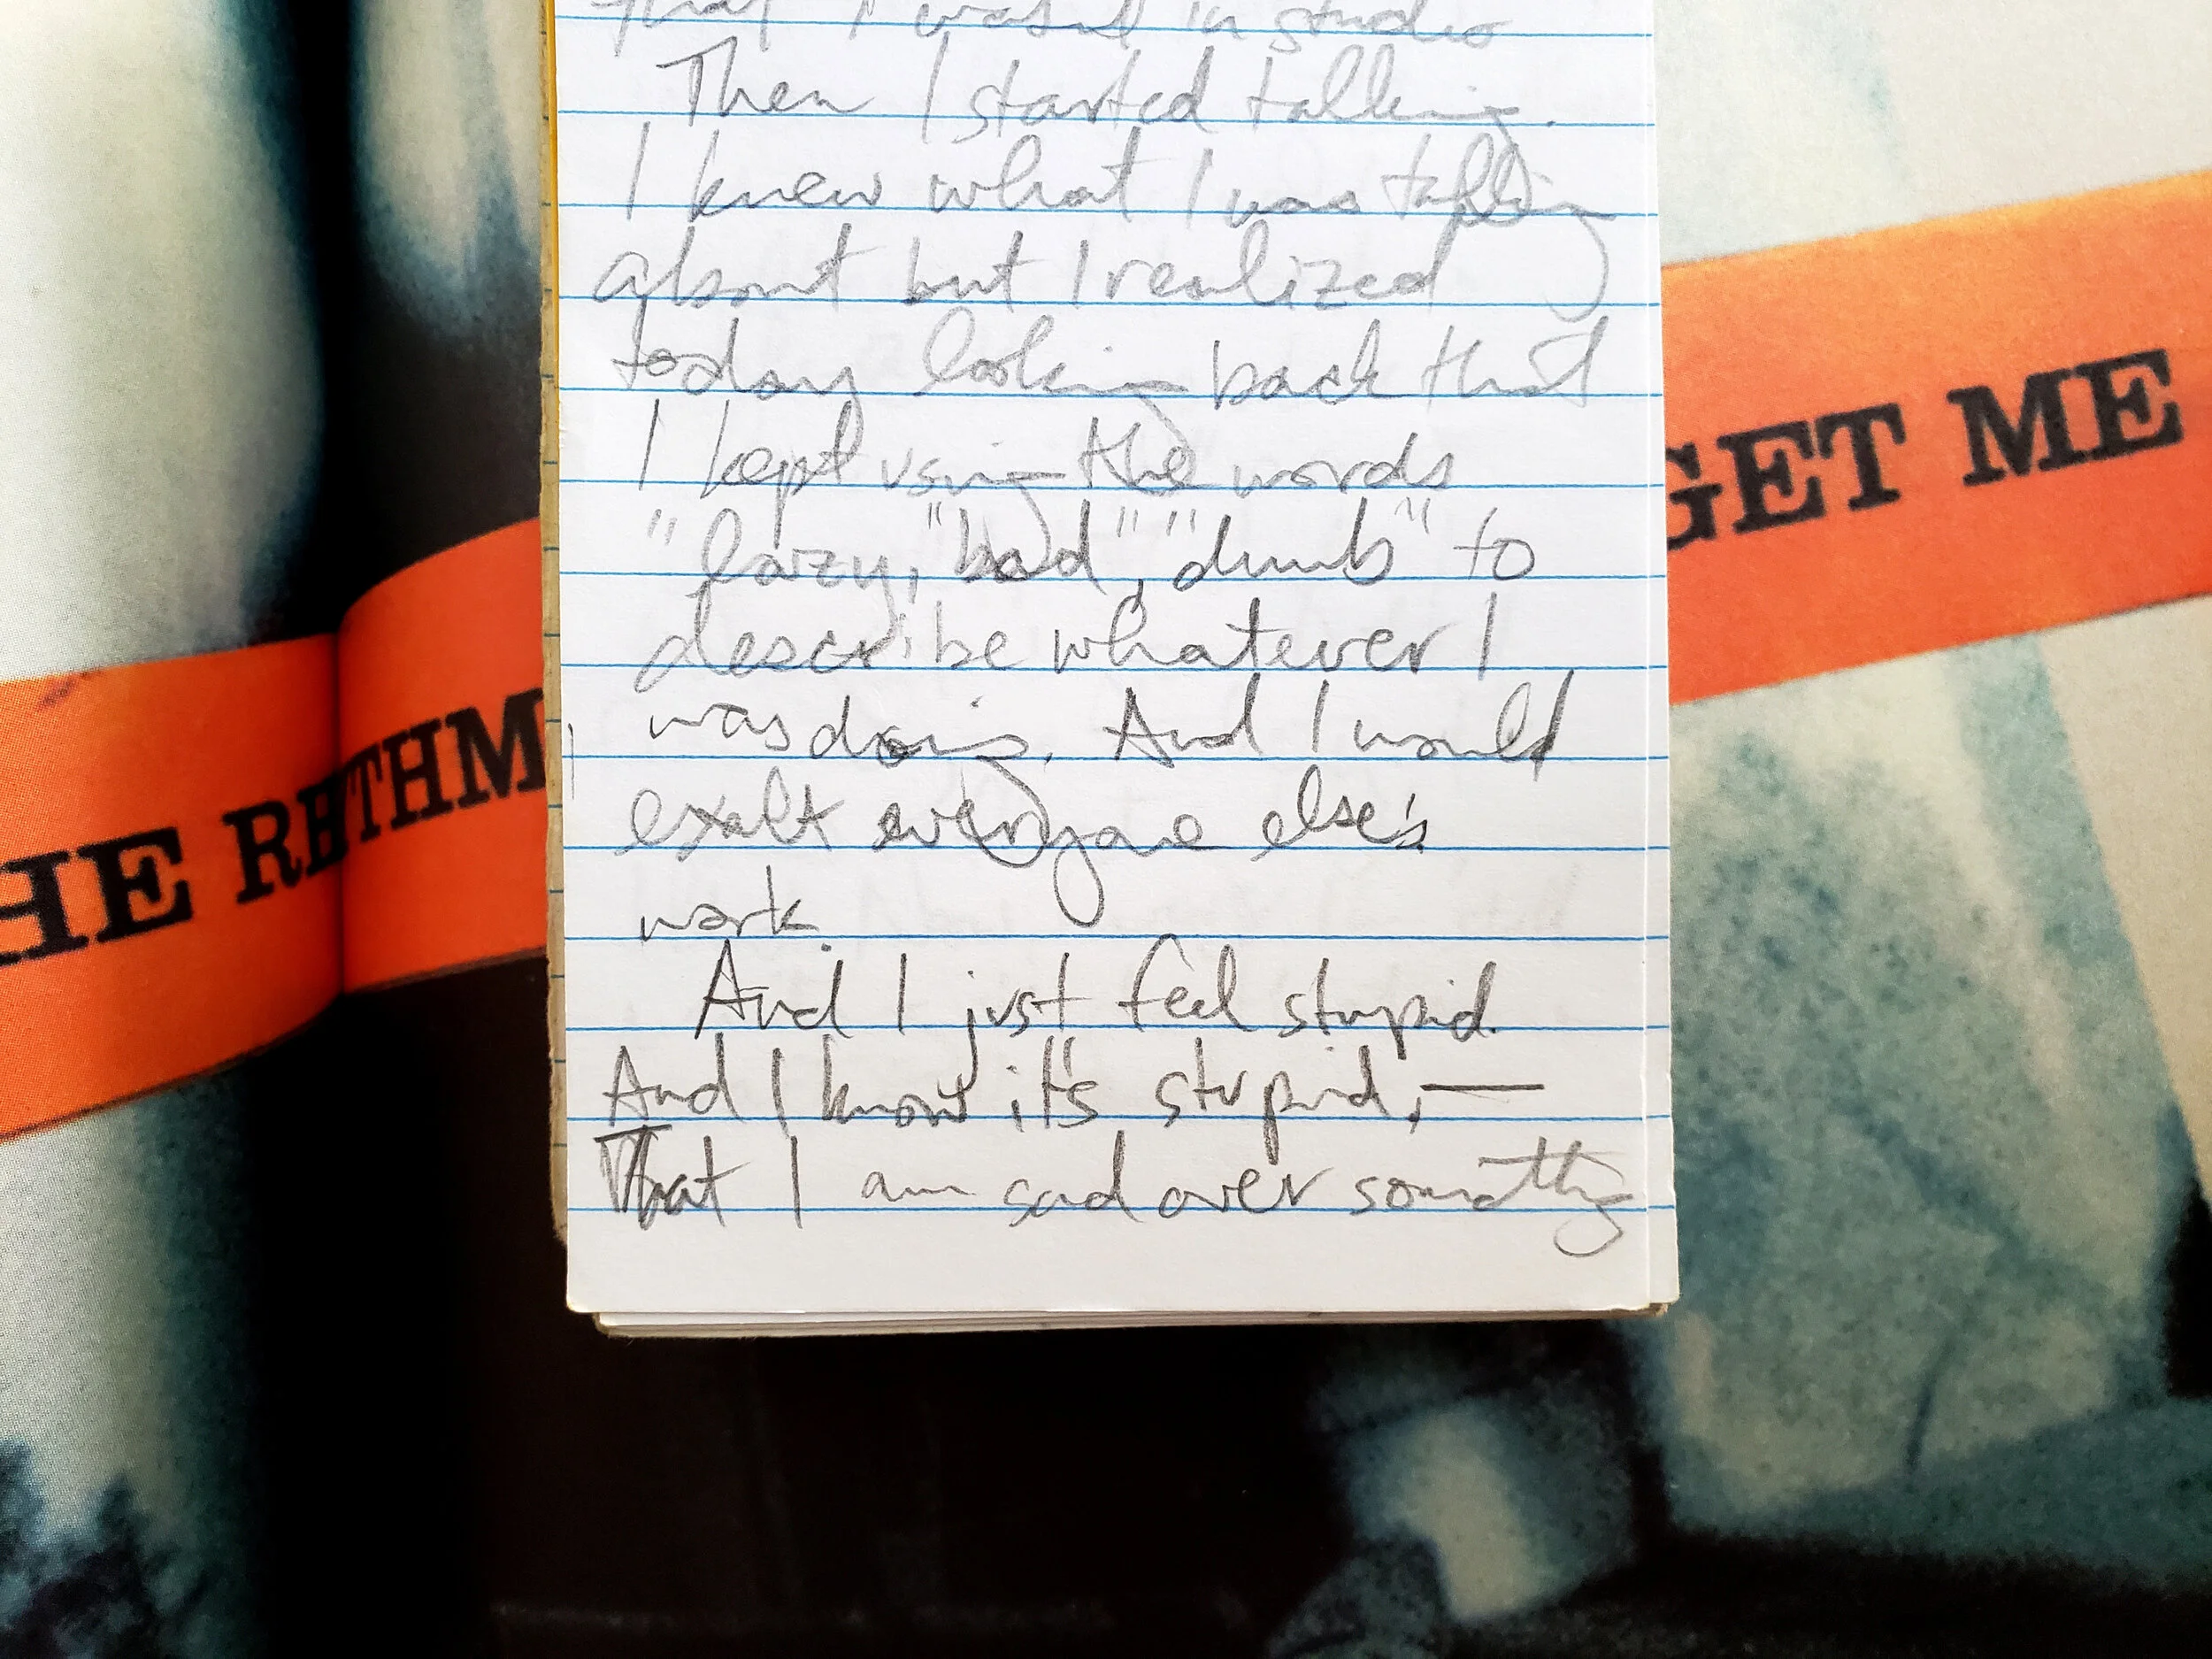 that I wasn't in studio
Then I started talking.
I knew what I was talking
about but I realized
today looking back that
I kept using the words
"lazy, "bad", "dumb" to
describe whatever I
was doing. And I would
exalt everyone else's
work.
And I just feel stupid.
And I know it's stupid, —
That I am sad over something
HE RHYTHM
GET ME